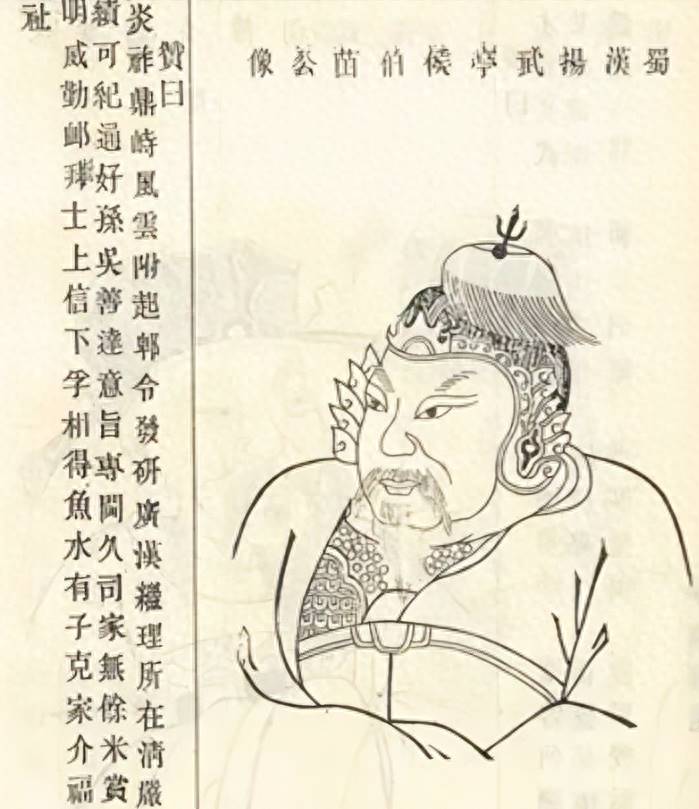 蜀漢揚武亭侯伯苗公像
贊曰
炎祚鼎峙風雲附起郫令發研廣漢繼理所在清嚴
績可紀通好孫吳善達意旨專閫久司家無餘米賞
明威勤卹將士上信下孚相得魚水有子克家介福
祉